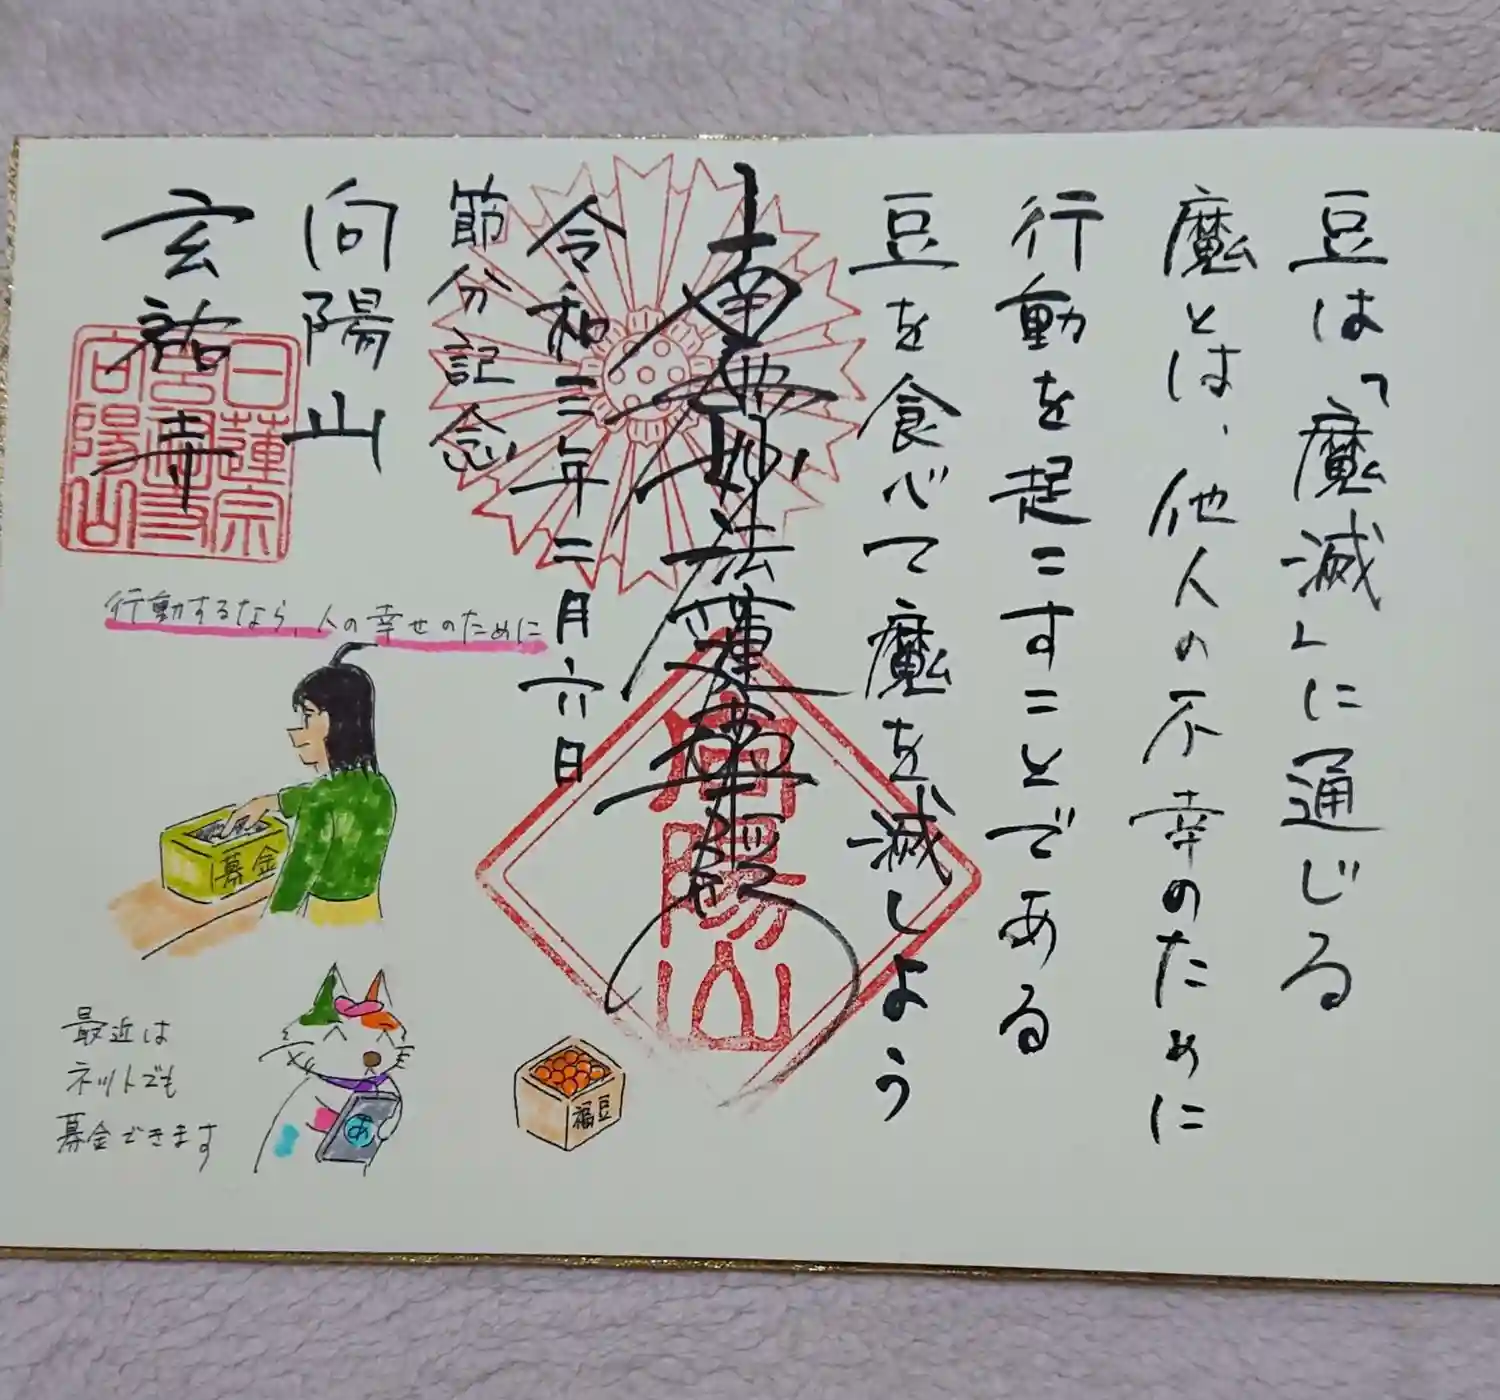 豆は「魔滅」に通じる
魔とは、他人の不幸のために
行動を起こすことである
豆を食べて魔を滅しよう
南無妙法蓮華経
令和三年二月六日
節分記念
向陽山
玄祐寺
向陽山
日蓮宗
向陽山
行動するなら、人の幸せのために
募金
最近は
ネットでも
募金できます
あ
福豆